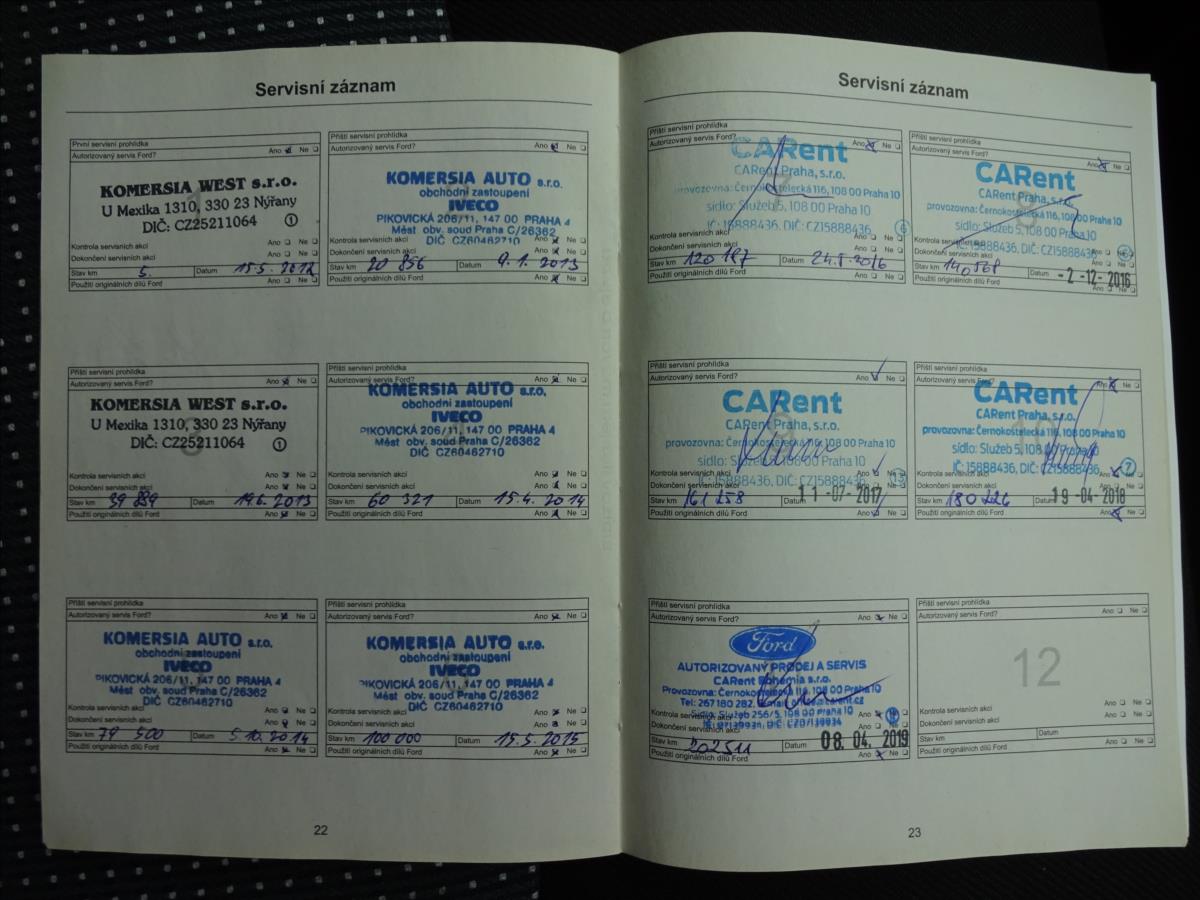 Servisní záznam
První servisní prohlídka
Autorizovaný servis Ford? Ano Ne
KOMERSIA WEST s.r.o.
U Mexika 1310, 330 23 Nýřany
DIČ: CZ25211064 1
Kontrola servisních akcí Ano Ne
Dokončení servisních akcí Ano Ne
Stav km 5. Datum 15.5.2012
Použití originálních dílů Ford Ano Ne
Příští servisní prohlídka
Autorizovaný servis Ford? Ano Ne
KOMERSIA AUTO s.r.o.
obchodní zastoupení
IVECO
PIKOVICKÁ 206/11, 147 00 PRAHA 4
Měst obv. soud Praha C/26362
DIČ CZ60462710
Kontrola servisních akcí
Dokončení servisních akcí
Stav km 20 856 Datum 9.1.2013
Použití originálních dílů Ford Ano Ne
Příští servisní prohlídka
Autorizovaný servis Ford? Ano Ne
KOMERSIA WEST s.r.o.
U Mexika 1310, 330 23 Nýřany
DIČ: CZ25211064 1
Kontrola servisních akcí Ano Ne
Dokončení servisních akcí Ano Ne
Stav km 39 889 Datum 19.6.2013
Použití originálních dílů Ford Ano Ne
Příští servisní prohlídka
Autorizovaný servis Ford? Ano Ne
KOMERSIA AUTO s.r.o.
obchodní zastoupení
IVECO
PIKOVICKÁ 206/11, 147 00 PRAHA 4
Měst obv. soud Praha C/26362
DIČ CZ60462710
Kontrola servisních akcí Ano Ne
Dokončení servisních akcí Ano Ne
Stav km 60 321 Datum 15.4.2014
Použití originálních dílů Ford Ano Ne
Příští servisní prohlídka
Autorizovaný servis Ford? Ano Ne
KOMERSIA AUTO s.r.o.
obchodní zastoupení
IVECO
PIKOVICKÁ 206/11, 147 00 PRAHA 4
Měst obv. soud Praha C/26362
DIČ CZ60462710
Kontrola servisních akcí Ano Ne
Dokončení servisních akcí Ano Ne
Stav km 79 500 Datum 5.10.2014
Použití originálních dílů Ford Ano Ne
Příští servisní prohlídka
Autorizovaný servis Ford? Ano Ne
KOMERSIA AUTO s.r.o.
obchodní zastoupení
IVECO
PIKOVICKÁ 206/11, 147 00 PRAHA 4
Měst obv. soud Praha C/26362
DIČ CZ60462710
Kontrola servisních akcí Ano Ne
Dokončení servisních akcí Ano Ne
Stav km 100 000 Datum 15.5.2015
Použití originálních dílů Ford Ano Ne
22
Servisní záznam
Příští servisní prohlídka
Autorizovaný servis Ford? Ano Ne
CARent
CARent Praha, s.r.o.
provozovna: Černokostelecká 116, 108 00 Praha 10
sídlo: Služeb 5, 108 00 Praha 10
IČ: 15888436, DIČ: CZ15888436
Kontrola servisních akcí
Dokončení servisních akcí Ano Ne
Stav km 120 197 Datum 2016
Použití originálních dílů Ford Ano Ne
Příští servisní prohlídka
Autorizovaný servis Ford? Ano Ne
CARent
CARent Praha, s.r.o.
provozovna: Černokostelecká 116, 108 00 Praha 10
sídlo: Služeb 5, 108 00 Praha 10
IČ: 15888436, DIČ: CZ15888436
Kontrola servisních akcí
Dokončení servisních akcí
Stav km 140 568 Datum -2 -12- 2016
Použití originálních dílů Ford Ano Ne
Příští servisní prohlídka
Autorizovaný servis Ford? Ano Ne
CARent
CARent Praha, s.r.o.
provozovna: Černokostelecká 116, 108 00 Praha 10
sídlo: Služeb 5, 108 00 Praha 10
IČ: 15888436, DIČ: CZ15888436
Kontrola servisních akcí Ano Ne
Dokončení servisních akcí
Stav km 161 258 Datum 11 -07- 2017
Použití originálních dílů Ford Ano Ne
Příští servisní prohlídka
Autorizovaný servis Ford? Ano Ne
CARent
CARent Praha, s.r.o.
provozovna: Černokostelecká 116, 108 00 Praha 10
sídlo: Služeb 5, 108 00 Praha 10
IČ: 15888436, DIČ: CZ15888436 7
Kontrola servisních akcí
Dokončení servisních akcí
Stav km 180 226 Datum 19 -04- 2018
Použití originálních dílů Ford Ano Ne
Příští servisní prohlídka
Autorizovaný servis Ford? Ano Ne
Ford
AUTORIZOVANÝ PRODEJ A SERVIS
CARent Bohemia s.r.o.
Provozovna: Černokostelecká 116, 108 00 Praha 10
Tel: 267 180 282,
Sídlo: Služeb 256/5, 108 00 Praha 10
Kontrola servisních akcí Ano Ne
Dokončení servisních akcí
Stav km 202511 Datum 08. 04. 2019
Použití originálních dílů Ford Ano Ne
Příští servisní prohlídka
Autorizovaný servis Ford? Ano Ne
12
Kontrola servisních akcí Ano Ne
Dokončení servisních akcí Ano Ne
Stav km Datum
Použití originálních dílů Ford Ano Ne
23